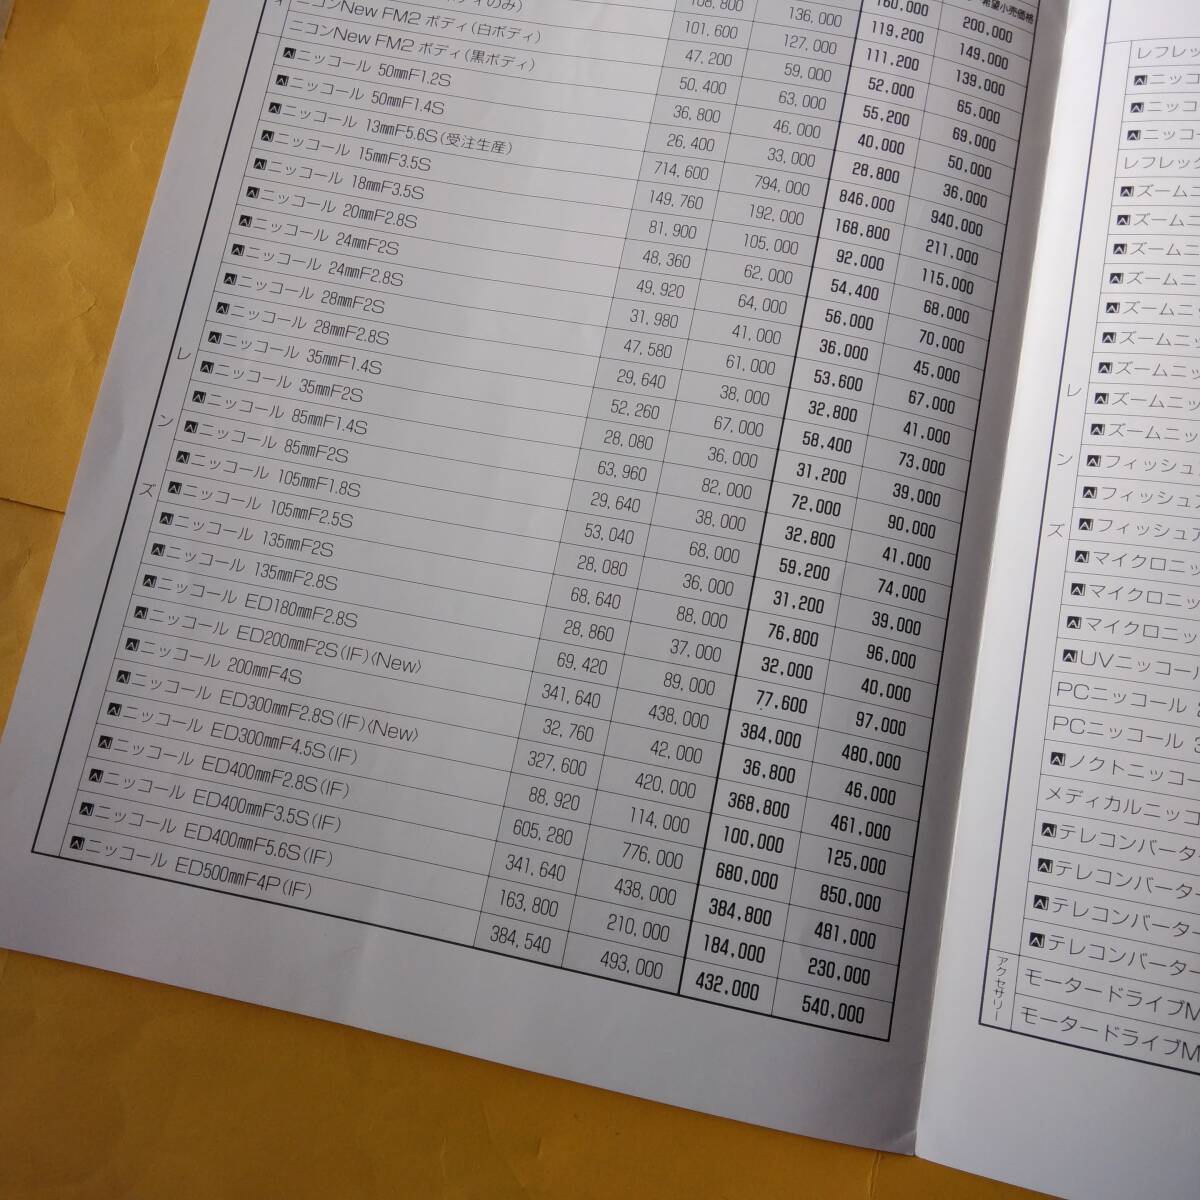 希望小売価格
160,000 200,000
108,800 136,000 119,200 149,000
ディのみ) 101,600 127,000 111,200 139,000
ニコンNew FM2 ボディ(白ボディ) 47,200 59,000 52,000 65,000
ニコンNew FM2 ボディ(黒ボディ) 50,400 63,000 55,200 69,000
AIニッコール 50mmF1.2S 36,800 46,000 40,000 50,000
AIニッコール 50mmF1.4S 26,400 33,000 28,800 36,000
AIニッコール 13mmF5.6S(受注生産) 714,600 794,000 846,000 940,000
AIニッコール 15mmF3.5S 149,760 192,000 168,800 211,000
AIニッコール 18mmF3.5S 81,900 105,000 92,000 115,000
AIニッコール 20mmF2.8S 48,360 62,000 54,400 68,000
AIニッコール 24mmF2S 49,920 64,000 56,000 70,000
AIニッコール 24mmF2.8S 31,980 41,000 36,000 45,000
AIニッコール 28mmF2S 47,580 61,000 53,600 67,000
AIニッコール 28mmF2.8S 29,640 38,000 32,800 41,000
AIニッコール 35mmF1.4S 52,260 67,000 58,400 73,000
AIニッコール 35mmF2S 28,080 36,000 31,200 39,000
AIニッコール 85mmF1.4S 63,960 82,000 72,000 90,000
AIニッコール 85mmF2S 29,640 38,000 32,800 41,000
AIニッコール 105mmF1.8S 53,040 68,000 59,200 74,000
AIニッコール 105mmF2.5S 28,080 36,000 31,200 39,000
AIニッコール 135mmF2S 68,640 88,000 76,800 96,000
AIニッコール 135mmF2.8S 28,860 37,000 32,000 40,000
AIニッコール ED180mmF2.8S 69,420 89,000 77,600 97,000
AIニッコール ED200mmF2S(IF)〈New〉 341,640 438,000 384,000 480,000
AIニッコール 200mmF4S 32,760 42,000 36,800 46,000
AIニッコール ED300mmF2.8S(IF)〈New〉 327,600 420,000 368,800 461,000
AIニッコール ED300mmF4.5S(IF) 88,920 114,000 100,000 125,000
AIニッコール ED400mmF2.8S(IF) 605,280 776,000 680,000 850,000
AIニッコール ED400mmF3.5S(IF) 341,640 438,000 384,800 481,000
AIニッコール ED400mmF5.6S(IF) 163,800 210,000 184,000 230,000
AIニッコール ED500mmF4P(IF) 384,540 493,000 432,000 540,000
レンズ
レフレッ
AIニッコ
AIニッコ
AIニッコ
レフレック
AIズームニ
AIズームニ
AIズームニ
AIズームニ
AIズームニ
AIズームニッ
AIズームニッ
AIズームニッ
AIズームニッ
AIフィッシュ
AIフィッシュ
AIフィッシュア
AIマイクロニッ
AIマイクロニッ
AIマイクロニッ
AIUVニッコール
PCニッコール
PCニッコール 3
AIノクトニッコー
メディカルニッコ
AIテレコンバータ
AIテレコンバーター
AIテレコンバーター
AIテレコンバーター
モータードライブM
モータードライブM
レンズ
アクセサリー